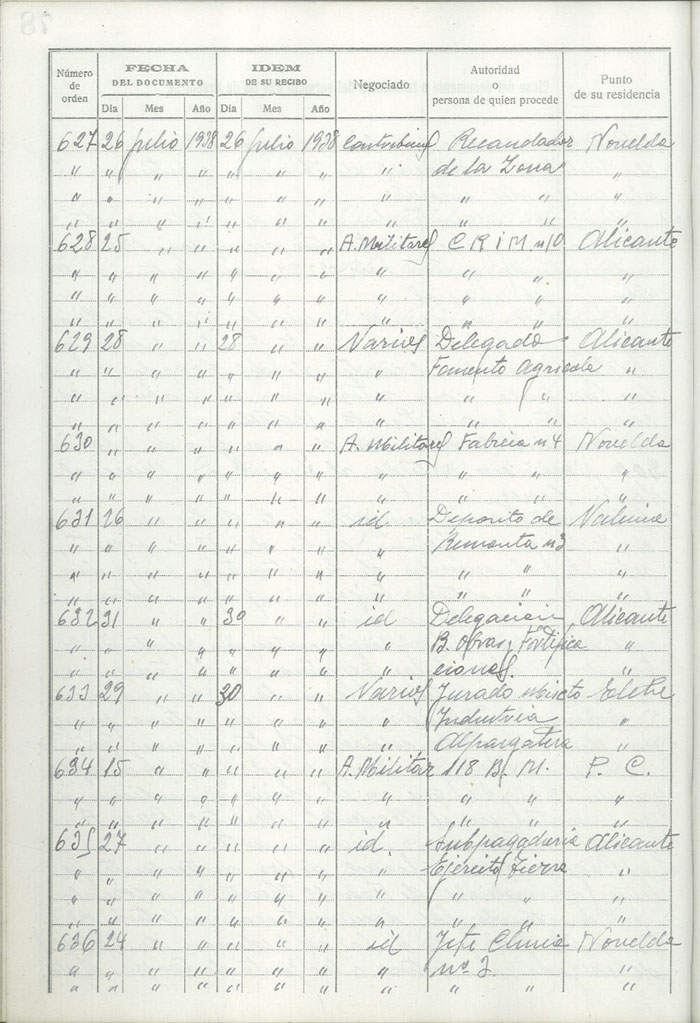 78
Número de orden | FECHA DEL DOCUMENTO | IDEM DE SU RECIBO | Negociado | Autoridad o persona de quien procede | Punto de su residencia
Día | Mes | Año | Día | Mes | Año
627 26 julio 1938 26 julio 1938 Recaudador Novelda
" " " " " " " " de la Zona "
" " " " " " " " " " "
" " " " " " " " " " "
628 25 " " " " " A. Militares C R i M. n 10 Alicante
" " " " " " " " " " "
" " " " " " " " " " "
" " " " " " " " " " "
629 28 " " 28 " " Varios Delegado Alicante
" " " " " " " " Fomento Agricola "
" " " " " " " " " " "
" " " " " " " " " " "
630 " " " " " " A. Militares Fabrica n 4 Novelda
" " " " " " " " " " "
" " " " " " " " " " "
631 26 " " " " " id Deposito de
" " " " " " " " Remonta n 3 "
" " " " " " " " " " "
" " " " " " " " " " "
632 31 " " 30 " " id Delegacion Alicante
" " " " " " " " B. Obras y Fortifica "
" " " " " " " " ciones. "
633 29 " " 30 " " Varios Jurado mixto Elche
" " " " " " " " Industria "
" " " " " " " " Alpargatera "
634 15 " " " " " A. Militar 118 B. M. P. C.
" " " " " " " " " " "
" " " " " " " " " " "
635 27 " " " " " id. Subpagaduria Alicante
" " " " " " " " Ejercito Tierra "
" " " " " " " " " " "
" " " " " " " " " " "
636 24 " " " " " id Jefe Clinica Novelda
" " " " " " " " nº 2. "
" " " " " " " " " " "